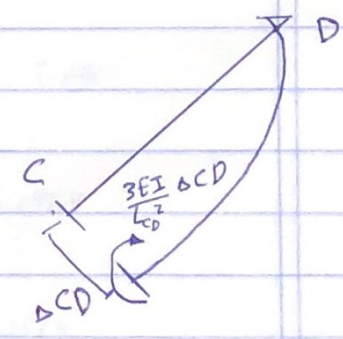 D
C
3EI/L_CD² ΔCD
ΔCD